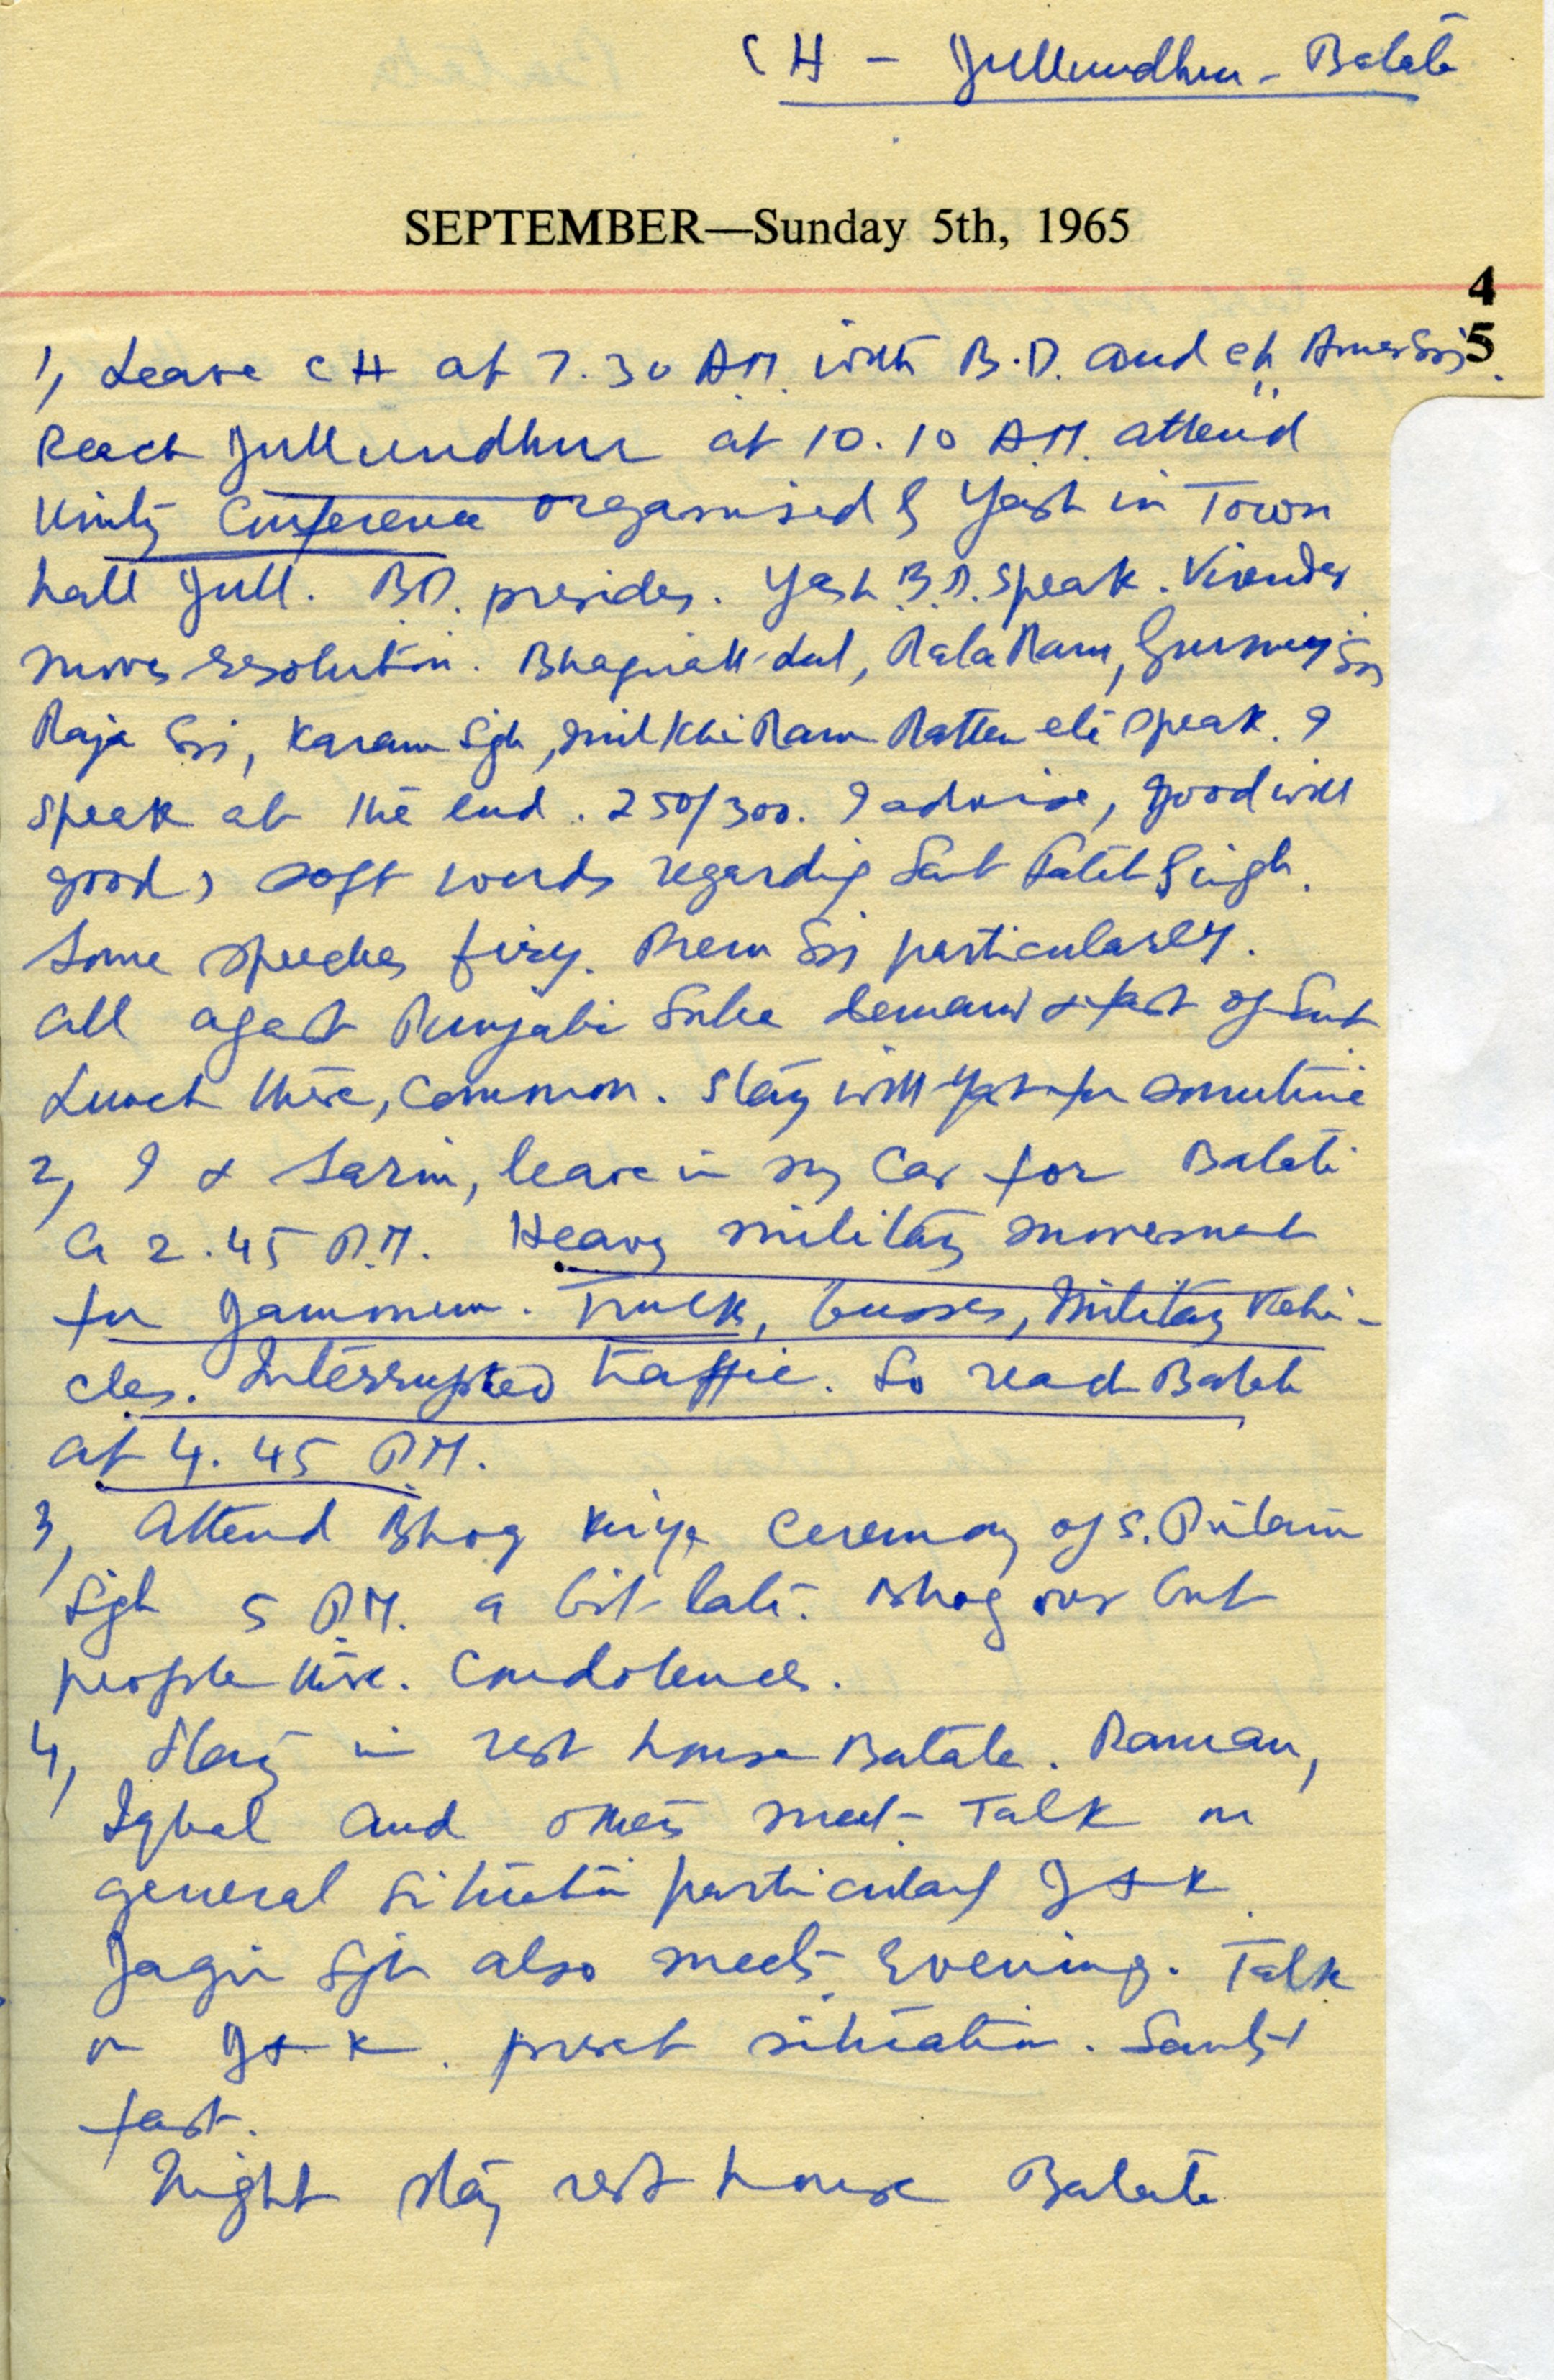 CH - Jullundhur - Batala
SEPTEMBER—Sunday 5th, 1965
4
5
1, Leave CH at 7.30 AM. with B.D. and ch Amar
Reach Jullundhur at 10.10 A.M. attend
Unity Conference organised by Yash in Town
hall Jull. BD. presides. Yash B.D. speak. Virender
moves resolution. Bhagirath Lal, Rala Ram,
Raja, Karam Sgh, Milkhi Ram Rattan etc speak. I
speak at the end. 250/300. I advise, good will
good, soft words regarding Sant Fateh Singh.
Some speeches firy. Prem particularly.
all agast Punjabi Suba demand & fast of Sant
Lunch there, common. Stay with Yash for sometime
2, I & Sarin, leave in my Car for Batala
2.45 P.M. Heavy military movement
for Jammu. Truck, busses, Military Vehi-
cles. Interrupted traffic. So reach Batala
at 4.45 P.M.
3, Attend Bhog kirya Ceremony of S. Pritam
Sgh 5 P.M. a bit late. Bhog over but
people there. Condolences.
4, Stay in rest house Batala. Raman,
Iqbal and others meet. Talk on
general situation particularly J & K
Jagir Sgh also meets evening. Talk
on J & K. present situation. Sant's
fast.
Night stay rest house Batala